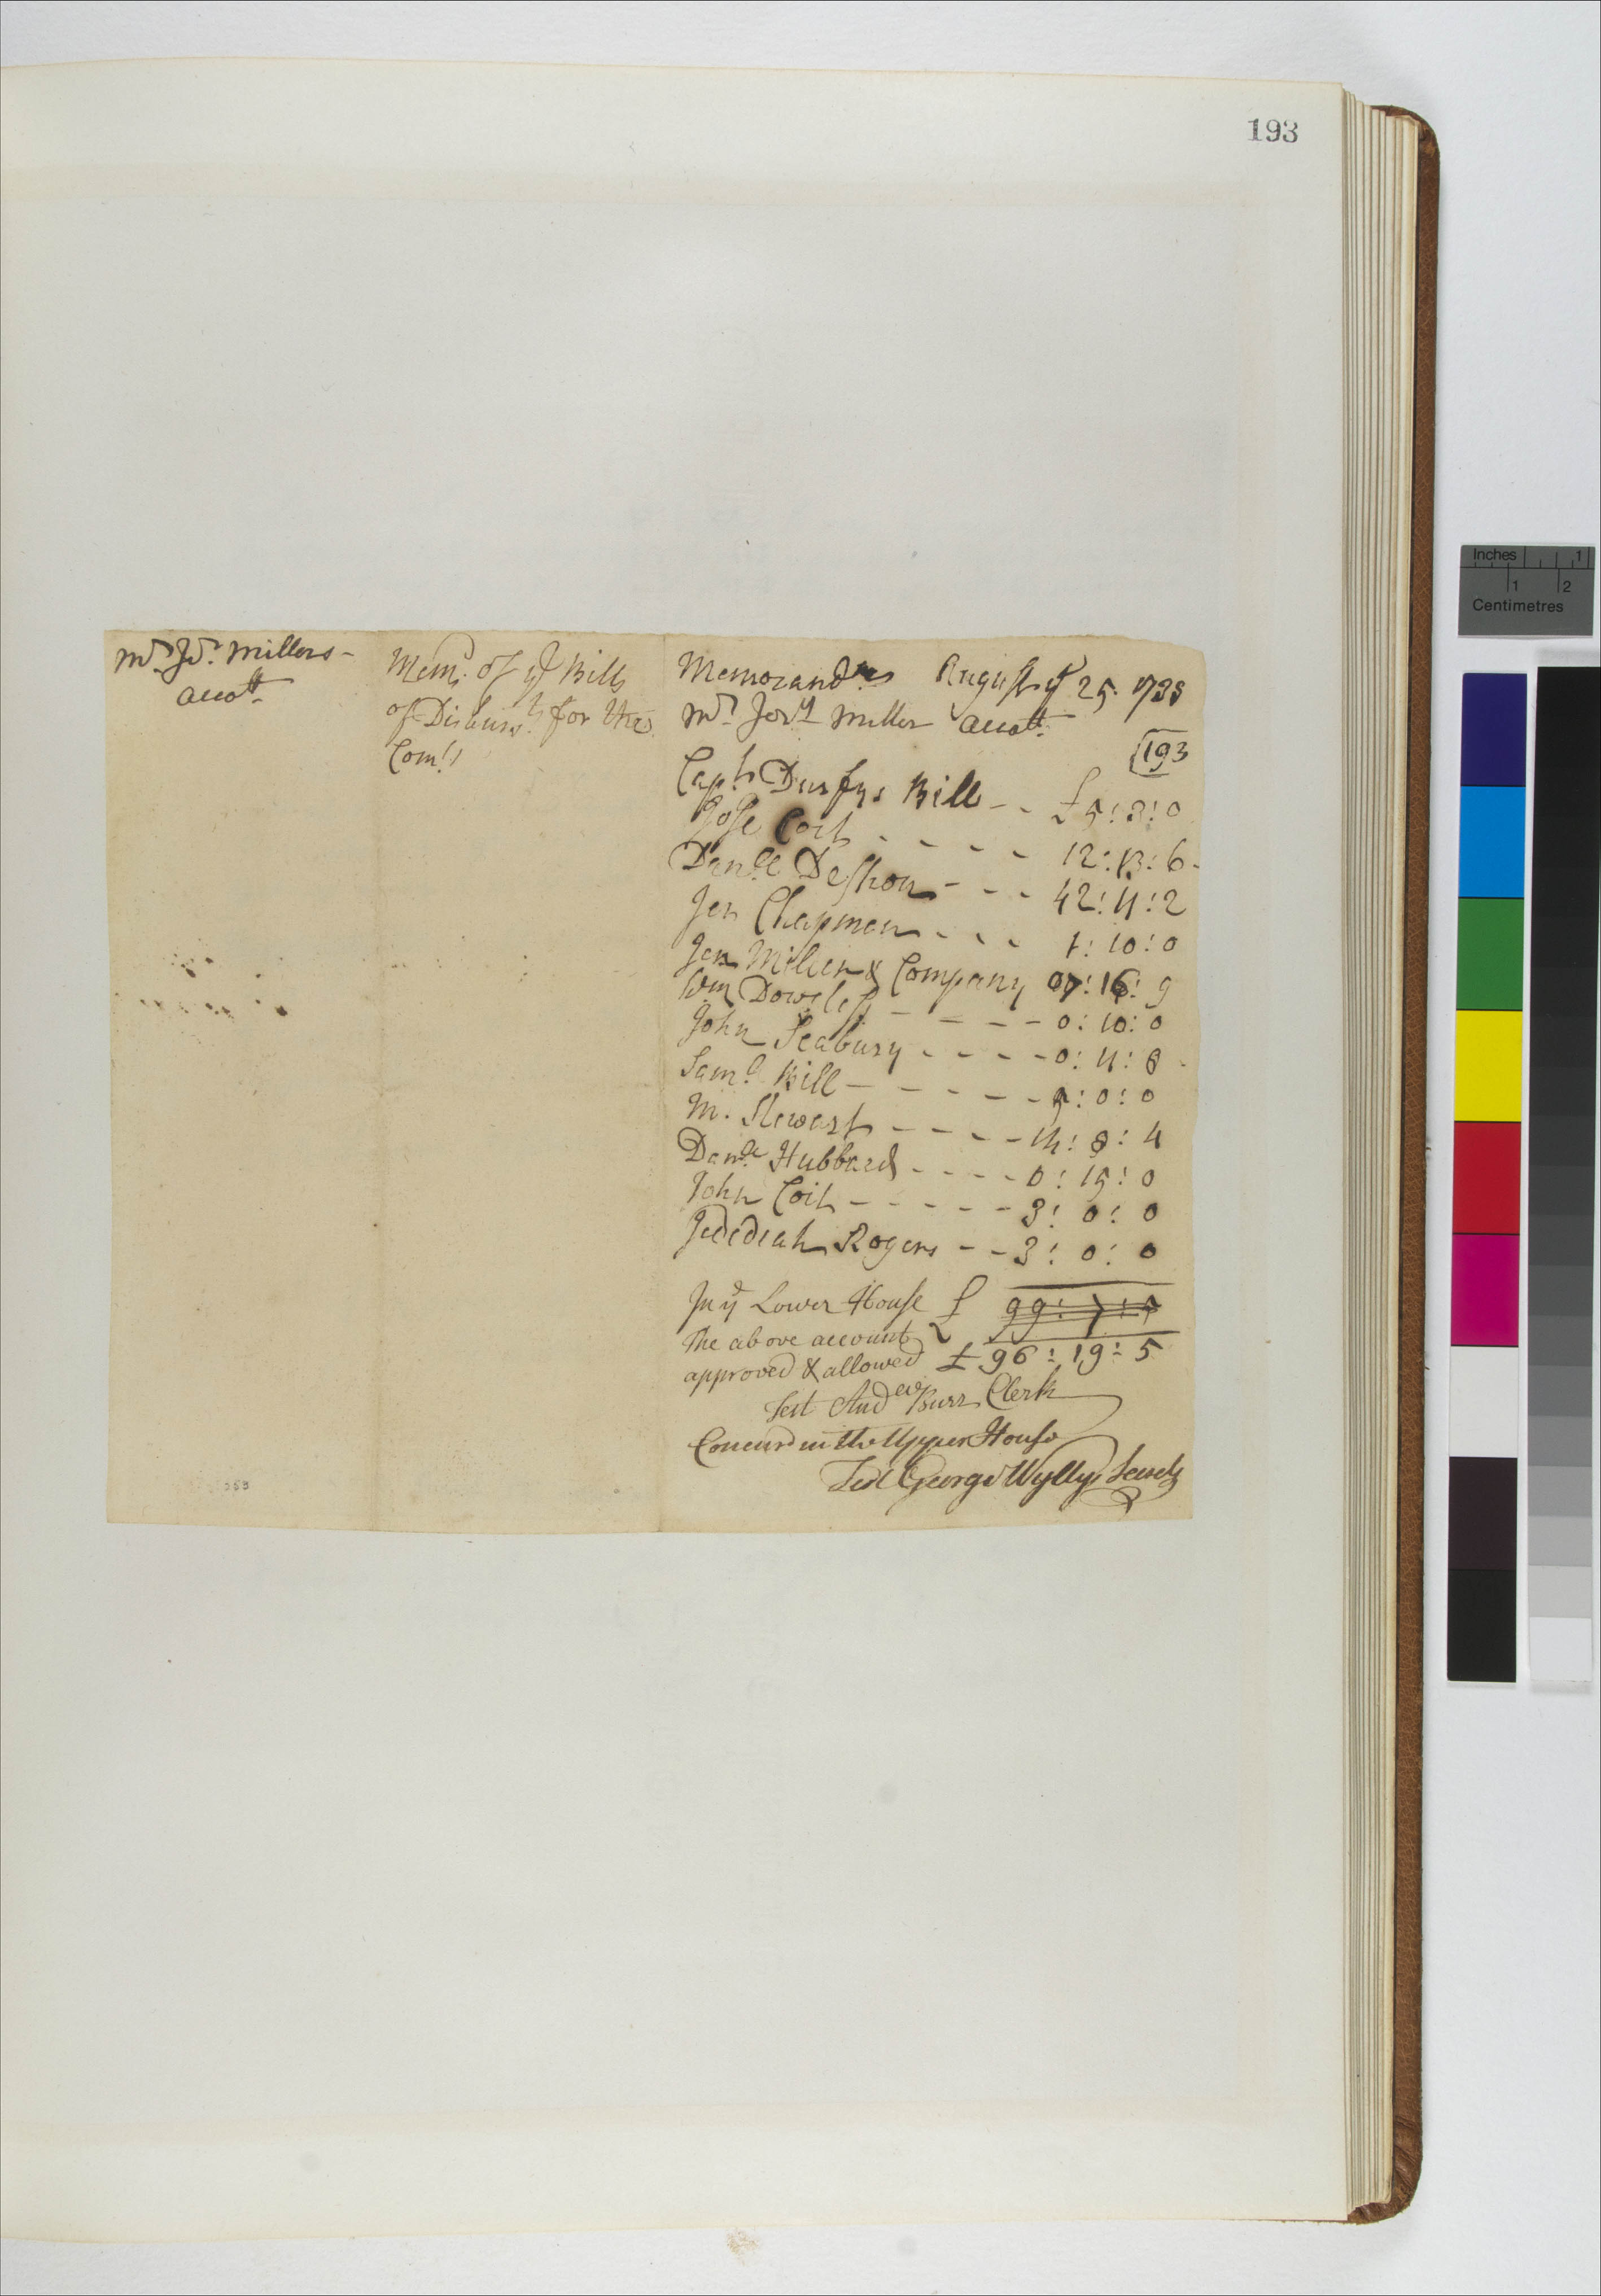 193
Mr. Jr. Millers -
accott.
Memd. of ye Bills
of Disburs.ts for the
Com.tt
Memorandm August ye 25. 1738
Mr. Jery Miller accott.
193
Capt. Durfys Bill - - £5:3:0
Jose Coit - - - - 12:13:6-
Danll. Deshon - - - 42:11:2
Jon Chapman - - - 1:10:0
Jer Miller & Company 07:16:9
Wm Dowgless - - - - 0:10:0
John Seabury - - - - 0:11:8
Saml. Bill - - - - - 5:0:0
M. Stewart - - - - 14:8:4
Danll. Hubbard - - - - 0:15:0
John Coit - - - - - - 3:0:0
Jedediah Rogers - - 3:0:0
In ye Lower House £ 99:7:5
The above account
approved & allowed £96:19:5
Test Andew Burr Clerk
Concurd in the Upper House
Test George Wyllys Secrety
Inches 1
1 2
Centimetres